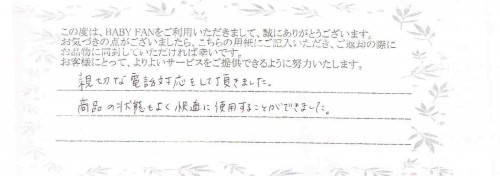 この度は、BABY FANをご利用いただきまして、誠にありがとうございます。
お気づきの点がございましたら、こちらの用紙にご記入いただき、ご返却の際に
お品物に同封していただければ幸いです。
お客様にとって、よりよいサービスをご提供できるように努力いたします。
親切な電話対応をして頂きました。
商品の状態もよく快適に使用することができました。